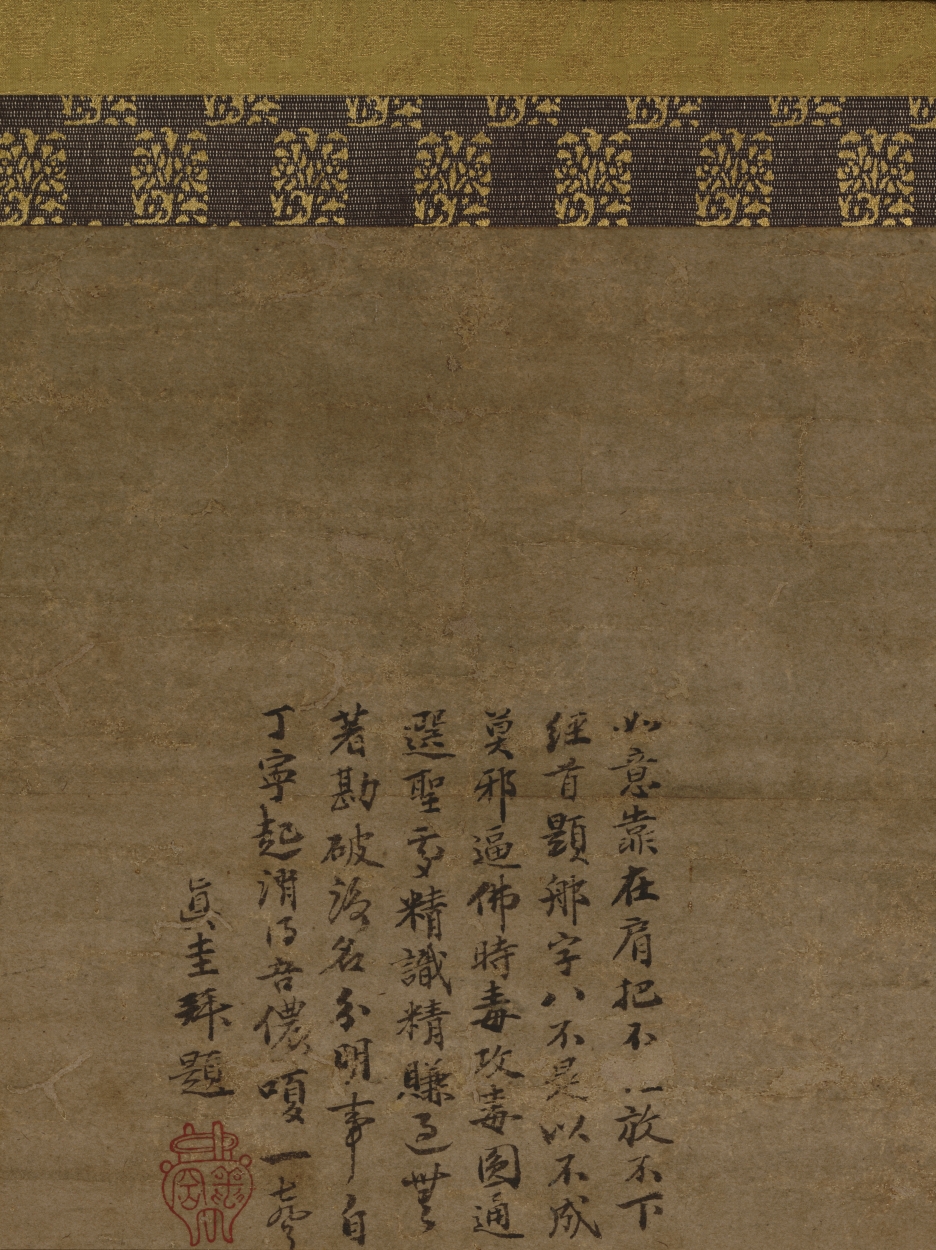 如意靠在肩把不放不下
經首題那字八不是以不成
莫邪逼佛時毒攻毒圓通
選聖精識精賺過
著勘破名分明事自
丁寧起消得吾儂嗄一
眞圭拜題